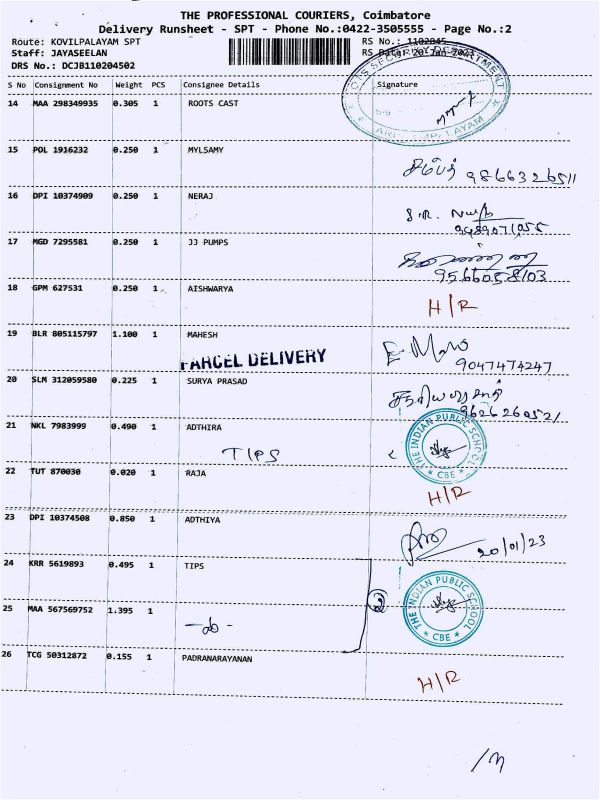 THE PROFESSIONAL COURIERS, Coimbatore
Delivery Runsheet - SPT - Phone No.:0422-3505555 - Page No.:2
Route: KOVILPALAYAM SPT RS No.: 1102045
Staff: JAYASEELAN RS Date: 20-Jan-2023
DRS No.: DCJB110204502
S No Consignment No Weight PCS Consignee Details Signature
14 MAA 298349935 0.305 1 ROOTS CAST
15 POL 1916232 0.250 1 MYLSAMY
சம்பத் 9866326511
16 DPI 10374909 0.250 1 NERAJ
S.R.
9489071055
17 MGD 7295581 0.250 1 JJ PUMPS
9566058103
18 GPM 627531 0.250 1 AISHWARYA
H/R
19 BLR 805115797 1.100 1 MAHESH
PARCEL DELIVERY
9047474247
20 SLM 312059580 0.225 1 SURYA PRASAD
9626260521
21 NKL 7983999 0.490 1 ADTHIRA
TIPS
THE INDIAN PUBLIC SCHOOL
CBE
22 TUT 870030 0.020 1 RAJA
H/R
23 DPI 10374508 0.850 1 ADTHIYA
20/01/23
24 KRR 5619893 0.495 1 TIPS
THE INDIAN PUBLIC SCHOOL
CBE
2
25 MAA 567569752 1.395 1
26 TCG 50312872 0.155 1 PADRANARAYANAN
H/R